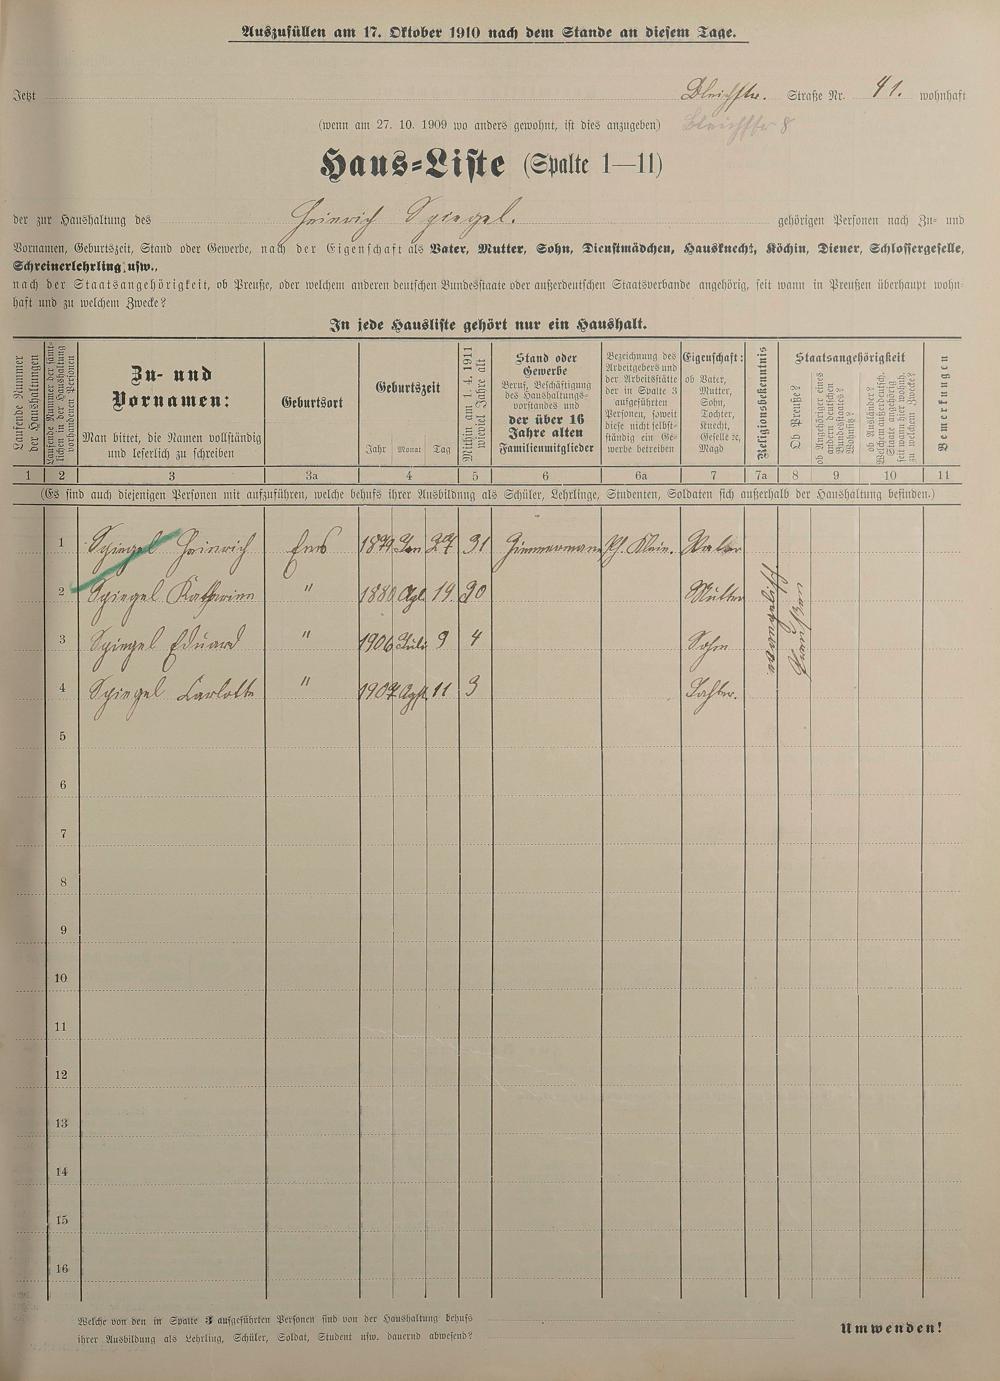 Auszufüllen am 17. Oktober 1910 nach dem Stande an diesem Tage.
Jetzt Bleichstr. Straße Nr. 41. wohnhaft
(wenn am 27. 10. 1909 wo anders gewohnt, ist dies anzugeben) Bleichstr 8
Haus-Liste (Spalte 1—11)
der zur Haushaltung des Heinrich Spiegel. gehörigen Personen nach Zu- und
Vornamen, Geburtszeit, Stand oder Gewerbe, nach der Eigenschaft als Vater, Mutter, Sohn, Dienstmädchen, Hausknecht, Köchin, Diener, Schlossergeselle,
Schreinerlehrling usw.,
nach der Staatsangehörigkeit, ob Preuße, oder welchem anderen deutschen Bundesstaate oder außerdeutschen Staatsverbande angehörig, seit wann in Preußen überhaupt wohn-
haft und zu welchem Zwecke?
In jede Hausliste gehört nur ein Haushalt.
Laufende Nummer
der Haushaltungen
Laufende Nummer der sämt-
lichen in der Haushaltung
vorhandenen Personen
Zu- und
Vornamen:
Man bittet, die Namen vollständig
und leserlich zu schreiben
Geburtsort
Geburtszeit
Jahr Monat Tag
Mithin am 1. 4. 1911
wieviel Jahre alt
Stand oder
Gewerbe
Beruf, Beschäftigung
des Haushaltungs-
vorstandes und
der über 16
Jahre alten
Familienmitglieder
Bezeichnung des
Arbeitgebers und
der Arbeitsstätte
der in Spalte 3
aufgeführten
Personen, soweit
diese nicht selbst-
ständig ein Ge-
werbe betreiben
Eigenschaft:
ob Vater,
Mutter,
Sohn,
Tochter,
Knecht,
Geselle ec,
Magd
Religionsbekenntnis
Staatsangehörigkeit
Ob Preuße?
ob Angehöriger eines
andern deutschen
Bundesstaates?
Welches?
ob Ausländer?
Welchem außerdeutsch.
Staate angehörig
seit wann hier wohnh.
zu welchem Zwecke?
Bemerkungen
1 2 3 3a 4 5 6 6a 7 7a 8 9 10 11
(Es sind auch diejenigen Personen mit aufzuführen, welche behufs ihrer Ausbildung als Schüler, Lehrlinge, Studenten, Soldaten sich außerhalb der Haushaltung befinden.)
1 Spiegel Heinrich Ems 1879 Jan 27 31 Zimmermann Ph. Klein. Vater
2 Spiegel Katharina " 1880 14. 30 Mutter
3 Spiegel Eduard " 1906 Juli 9 4 Sohn
4 Spiegel Carlotte " 1907 Agst. 11 3 Tochter.
evangelisch
Preußen
5
6
7
8
9
10
11
12
13
14
15
16
Welche von den in Spalte 3 aufgeführten Personen sind von der Haushaltung behufs
ihrer Ausbildung als Lehrling, Schüler, Soldat, Student usw. dauernd abwesend?
Umwenden!